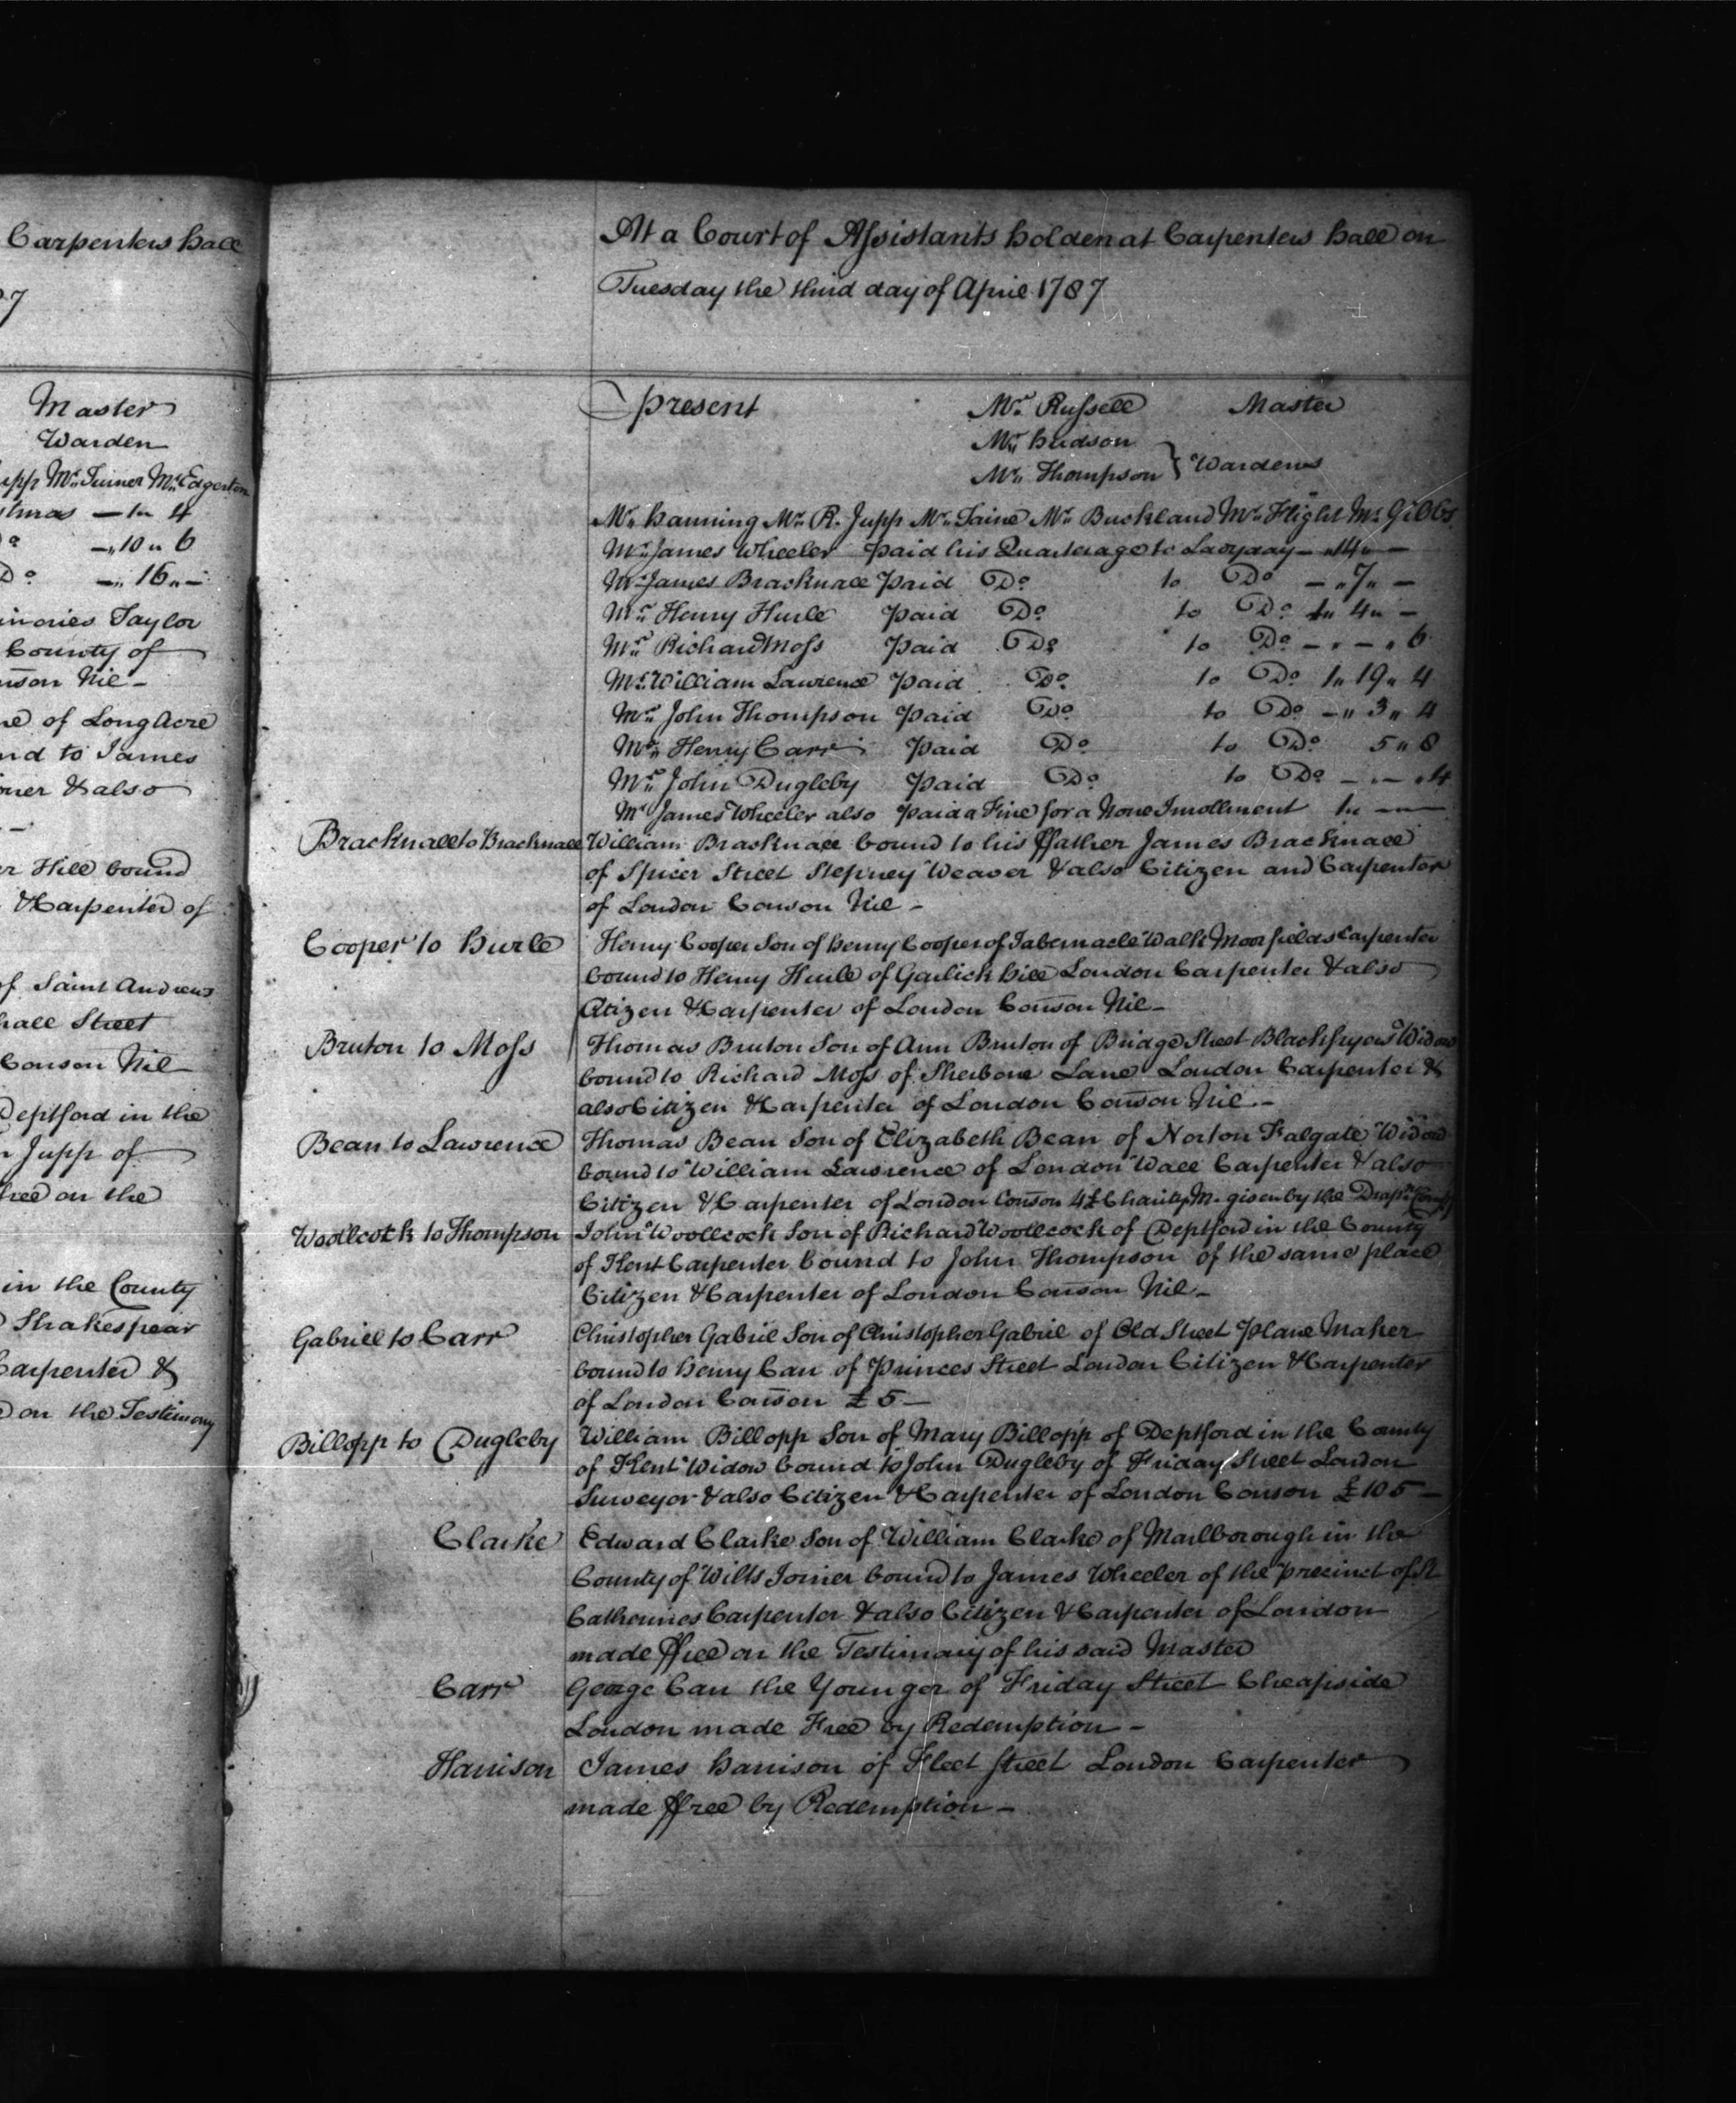 Carpenters hall
7
Master
Warden
upp Mr. Turner Mr. Edgerton
stmas — 1 " 4
Do — " 10 " 6
Do — " 16 " —
inories Taylor
County of
Conson Nil —
ne of Long Acre
nd to James
oiner & also
—
er Hill bound
& Carpenter of
of Saint Andrews
hall Street
Conson Nil
Deptford in the
n Jupp of
free on the
in the County
Shakespear
Carpenter &
on the Testimony
At a Court of Assistants holden at Carpenters hall on
Tuesday the third day of April 1787
present Mr. Russell Master
Mr. hudson
Mr. Thompson } Wardens
Mr. hanning Mr. R. Jupp Mr. Saine Mr. Buckland Mr. Flight Mr. Gibbs
Mr. James Wheeler paid his Quarterage to Ladyday — " 14 " —
Mr. James Bracknall paid Do to Do — " 7 " —
Mr. Henry Hurle paid Do to Do 1 " 4 " —
Mr. Richard Moss paid Do to Do — " — " 6
Mr. William Lawrence paid Do to Do 1 " 19 " 4
Mr. John Thompson paid Do to Do — " 3 " 4
Mr. Henry Carr paid Do to Do 5 " 8
Mr. John Dugleby paid Do to Do — " — " 4
Mr. James Wheeler also paid a Fine for a None Inrollment 1 " — —
Bracknall to Bracknall William Bracknall bound to his ffather James Bracknall
of Spicer Street Stepney Weaver & also Citizen and Carpenter
of London Conson Nil —
Cooper to Hurle Henry Cooper Son of henry Cooper of Tabernacle Walk Moorfields Carpenter
bound to Henry Hurle of Garlick hill London Carpenter & also
Citizen & Carpenter of London Conson Nil —
Bruton to Moss Thomas Bruton Son of Ann Bruton of Bridge Street Blackfryars Widow
bound to Richard Moss of Sherbone Lane London Carpenter &
also Citizen & Carpenter of London Conson Nil. —
Bean to Lawrence Thomas Bean Son of Elizabeth Bean of Norton Falgate Widow
bound to William Lawrence of London Wall Carpenter & also
Citizen & Carpenter of London Conson 4£ Charity M. given by the Drapers Compy
Woollcock to Thompson John Woollcock Son of Richard Woollcock of Deptford in the County
of Kent Carpenter bound to John Thompson of the same place
Citizen & Carpenter of London Conson Nil —
Gabriell to Carr Christopher Gabriel Son of Christopher Gabriel of Old Street Plane Maker
bound to henry Carr of Princes Street London Citizen & Carpenter
of London Conson £5 —
Billopp to Dugleby William Billopp Son of Mary Billopp of Deptford in the County
of Kent Widow bound to John Dugleby of Friday Street London
Surveyor & also Citizen & Carpenter of London Conson £105 —
Clarke Edward Clarke Son of William Clarke of Marlborough in the
County of Wilts Joiner bound to James Wheeler of the precinct of St
Catherines Carpenter & also Citizen & Carpenter of London
made ffree on the Testimony of his said Master
Carr George Carr the Younger of Friday Street Cheapside
London made Free by Redemption —
Harrison James harrison of Fleet Street London Carpenter
made ffree by Redemption —